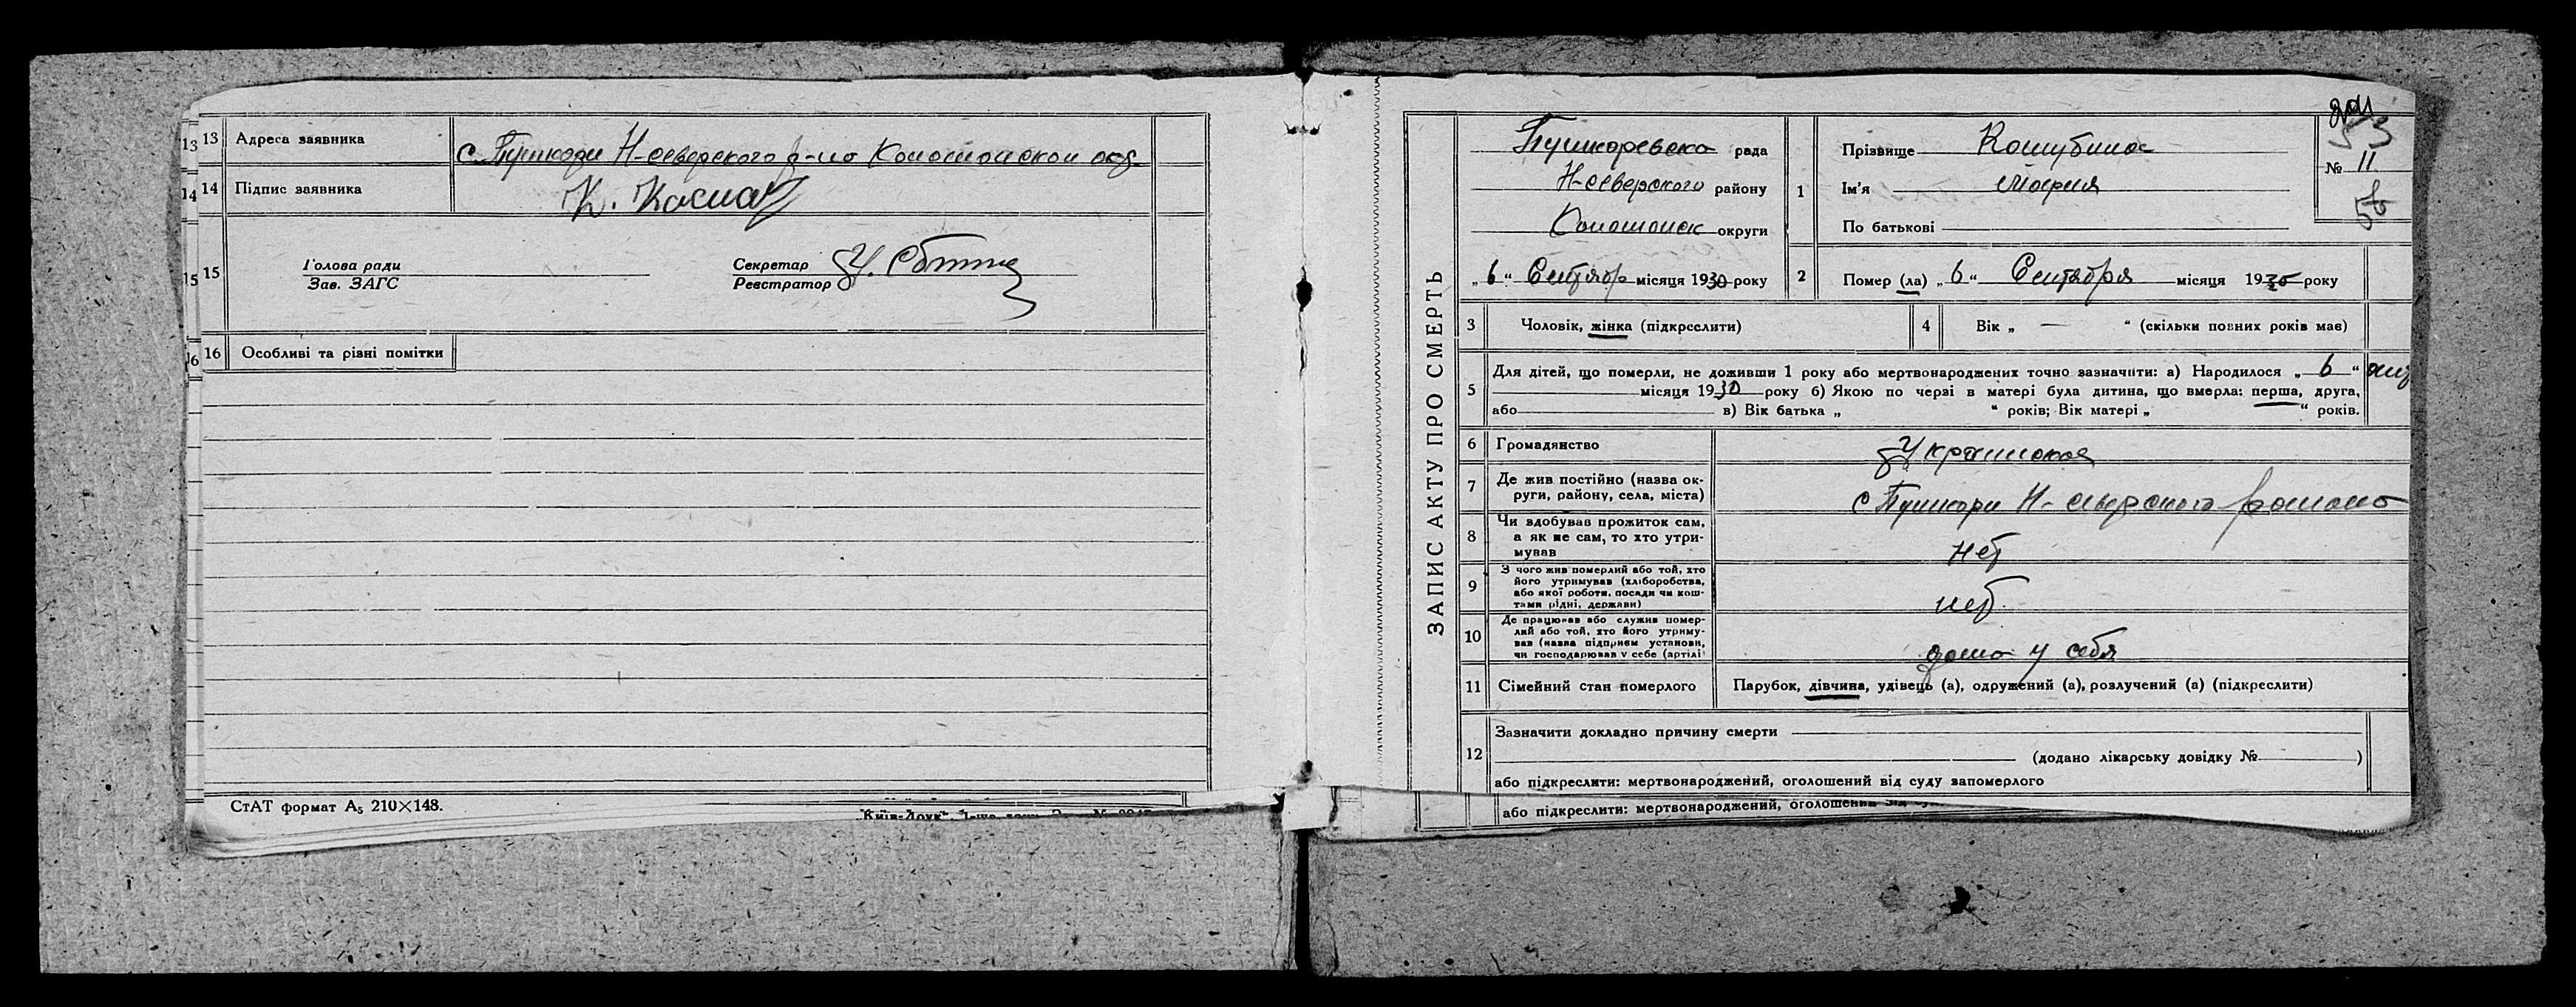 13 13 Адреса заявника с. Пушкари Н-северского р-но Конотопской окр.
14 14 Підпис заявника К. Касиа
15 15 Голова ради Секретар
Зав. ЗАГС Реєстратор
16 16 Особливі та різні помітки
СтАТ формат А5 210×148.
ЗАПИС АКТУ ПРО СМЕРТЬ
Пушкаревска рада
Н-северского району
Конотопск округи
„6“ Сентябр місяця 1930 року
53
№ 11
56
1 Прізвище Кошубина
Ім'я Мария
По батькові
2 Помер (ла) „6“ Сентября місяця 1930 року
3 Чоловік, жінка (підкреслити) 4 Вік „ — “ (скільки повних років має)
5 Для дітей, що померли, не доживши 1 року або мертвонароджених точно зазначити: а) Народилося „ 6 “
місяця 1930 року б) Якою по черзі в матері була дитина, що вмерла: перша, друга,
або в) Вік батька „ “ років; Вік матері „ “ років.
6 Громадянство Украинская
7 Де жив постійно (назва ок-
руги, району, села, міста) с Пушкари Н-северского района
8 Чи здобував прожиток сам,
а як не сам, то хто утри-
мував нет
9 З чого жив померлий або той, хто
його утримував (хліборобства,
або якої роботи, посади чи кош-
тами рідні, держави) нет
10 Де працював або служив помер-
лий або той, хто його утриму-
вав (назва підприєм установи,
чи господарював у себе (артілі) дома у себя
11 Сімейний стан померлого Парубок, дівчина, удівець (а), одружений (а), розлучений (а) (підкреслити)
12 Зазначити докладно причину смерти
(додано лікарську довідку № )
або підкреслити: мертвонароджений, оголошений від суду запомерлого
або підкреслити: мертвонароджений, оголошений від